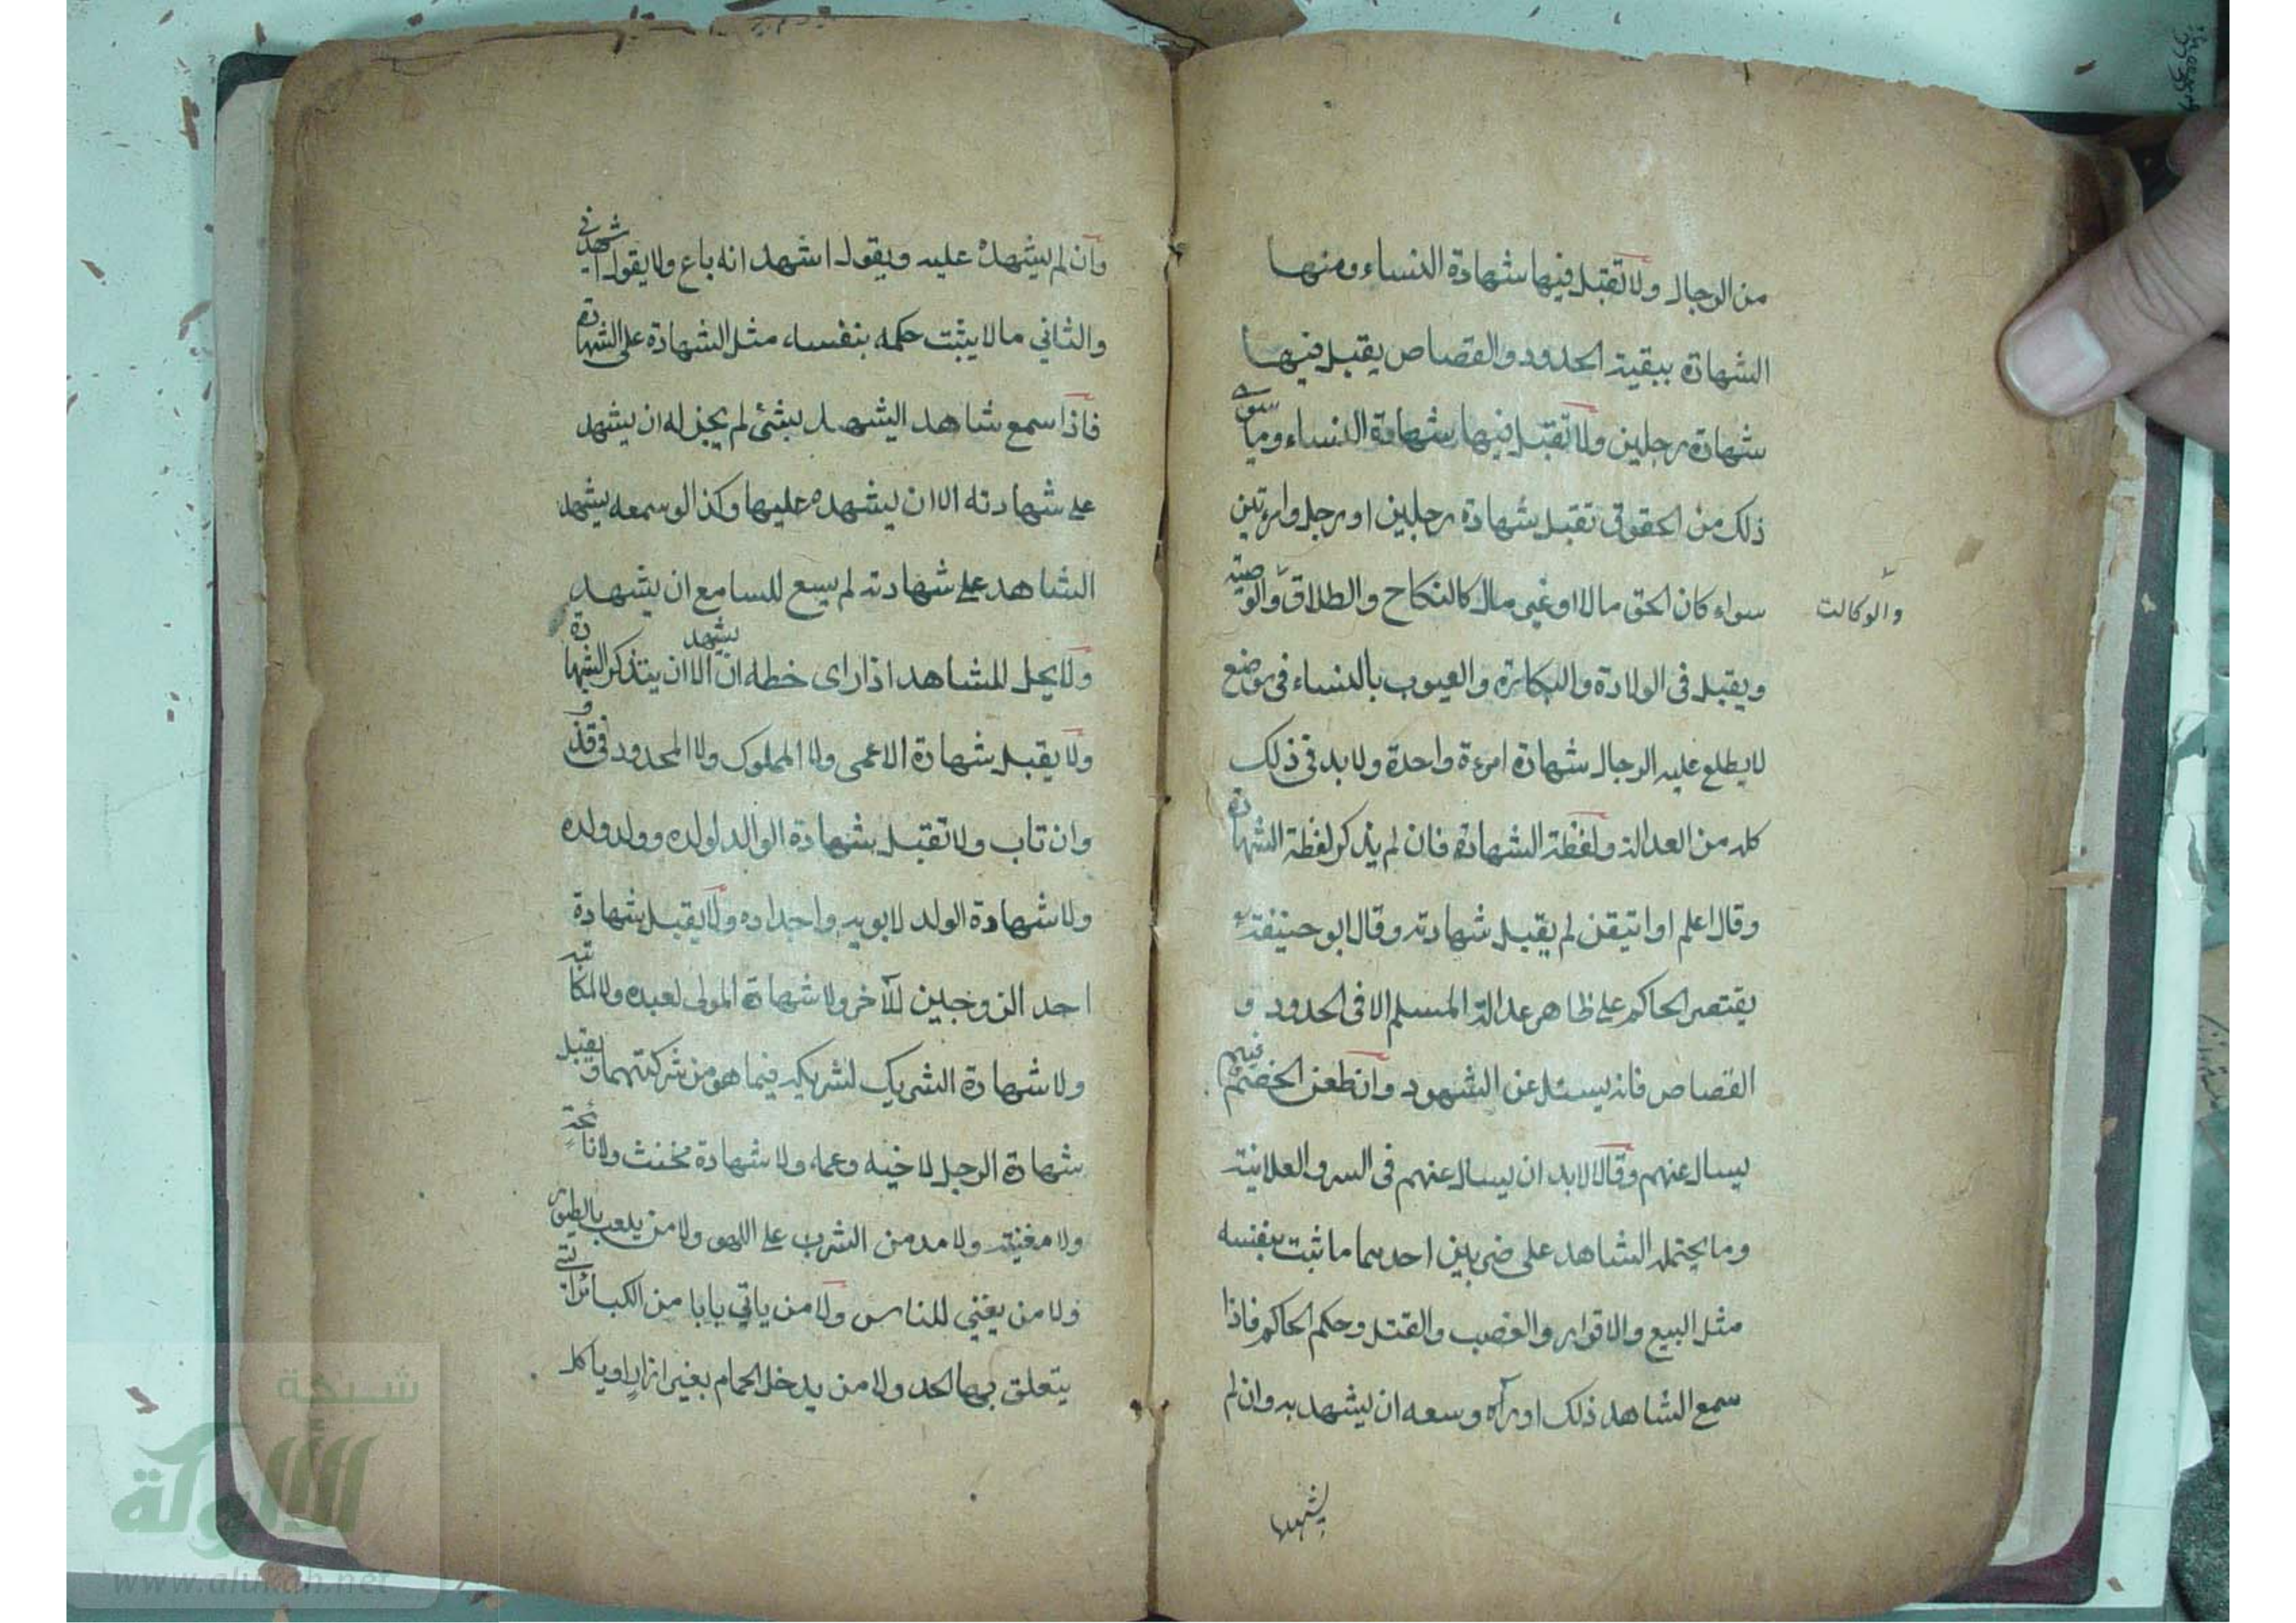 من الرجال ولا تقبل فيها شهادة النساء ومنها
الشهادة ببقية الحدود والقصاص يقبل فيها
شهادة رجلين ولا تقبل فيها شهادة النساء وما سوى
ذلك من الحقوق تقبل شهادة رجلين او رجل وامرءتين
سواء كان الحق مالا او غير مال كالنكاح والطلاق والوصية
والوكالت
ويقبل فى الولادة والبكارة والعيوب بالنساء فى موضع
لا يطلع عليه الرجال شهادة امرءة واحدة ولا بد فى ذلك
كله من العدالة ولفظة الشهادة فان لم يذكر لفظة الشهادة
وقال اعلم او اتيقن لم يقبل شهادته وقال ابو حنيفة
يقتصر الحاكم على ظاهر عدالة المسلم الا فى الحدود و
القصاص فانه يسئل عن الشهود وان طعن الخصم فيهم
يسال عنهم وقالا لا بد ان يسال عنهم فى السر والعلانية
وما يحتمله الشاهد على ضربين احدهما ما ثبت بنفسه
مثل البيع والاقرار والغصب والقتل وحكم الحاكم فاذا
سمع الشاهد ذلك او رآه وسعه ان يشهد به وان لم
يشهد
وان لم يشهده عليه ويقول اشهد انه باع ولا يقول اشهدنى
والثاني ما لا يثبت حكمه بنفسه مثل الشهادة على الشهادة
فاذا سمع شاهد اليشهد بشئ لم يجز له ان يشهد
على شهادته الا ان يشهده عليها وكذا لو سمعه يشهد
الشاهد على شهادته لم يسع للسامع ان يشهد
ولا يحل للشاهد اذا راى خطه ان يشهد الا ان يتذكر الشهادة
ولا يقبل شهادة الاعمى ولا المملوك ولا المحدود فى قذف
وان تاب ولا تقبل شهادة الوالد لولده وولد ولده
ولا شهادة الولد لابويه واجداده ولا يقبل شهادة
احد الزوجين للآخر ولا شهادة المولى لعبده ولا لمكاتبه
ولا شهادة الشريك لشريكه فيما هو من شركتهما ويقبل
شهادة الرجل لاخيه وعمه ولا شهادة مخنث ولا نائحة
ولا مغنية ولا مدمن الشرب على اللهو ولا من يلعب بالطيور
ولا من يغني للناس ولا من ياتي بابا من الكبائر التى
يتعلق بها الحد ولا من يدخل الحمام بغير ازار او ياكل
شبكة
الألوكة
www.alukah.net